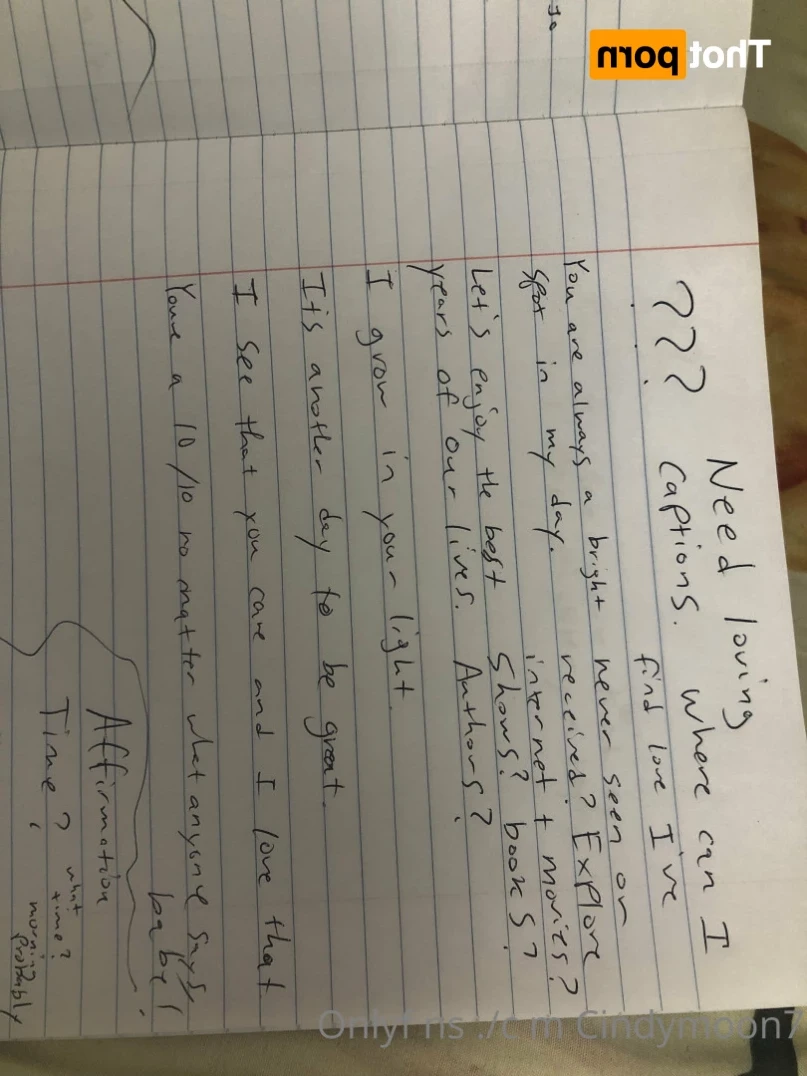 Thot porn
Need loving
??? captions. where can I
find love I've
You are always a bright never seen or
spot in my day. received? Explore
internet + movies?
Let's enjoy the best shows? books?
years of our lives. Authors?
I grow in your light
It's another day to be great.
I see that you care and I love that
Youre a 10/10 no matter what anyone says,
babe!
Affirmation
Time? what
time?
morning
probably
Cindymoon7